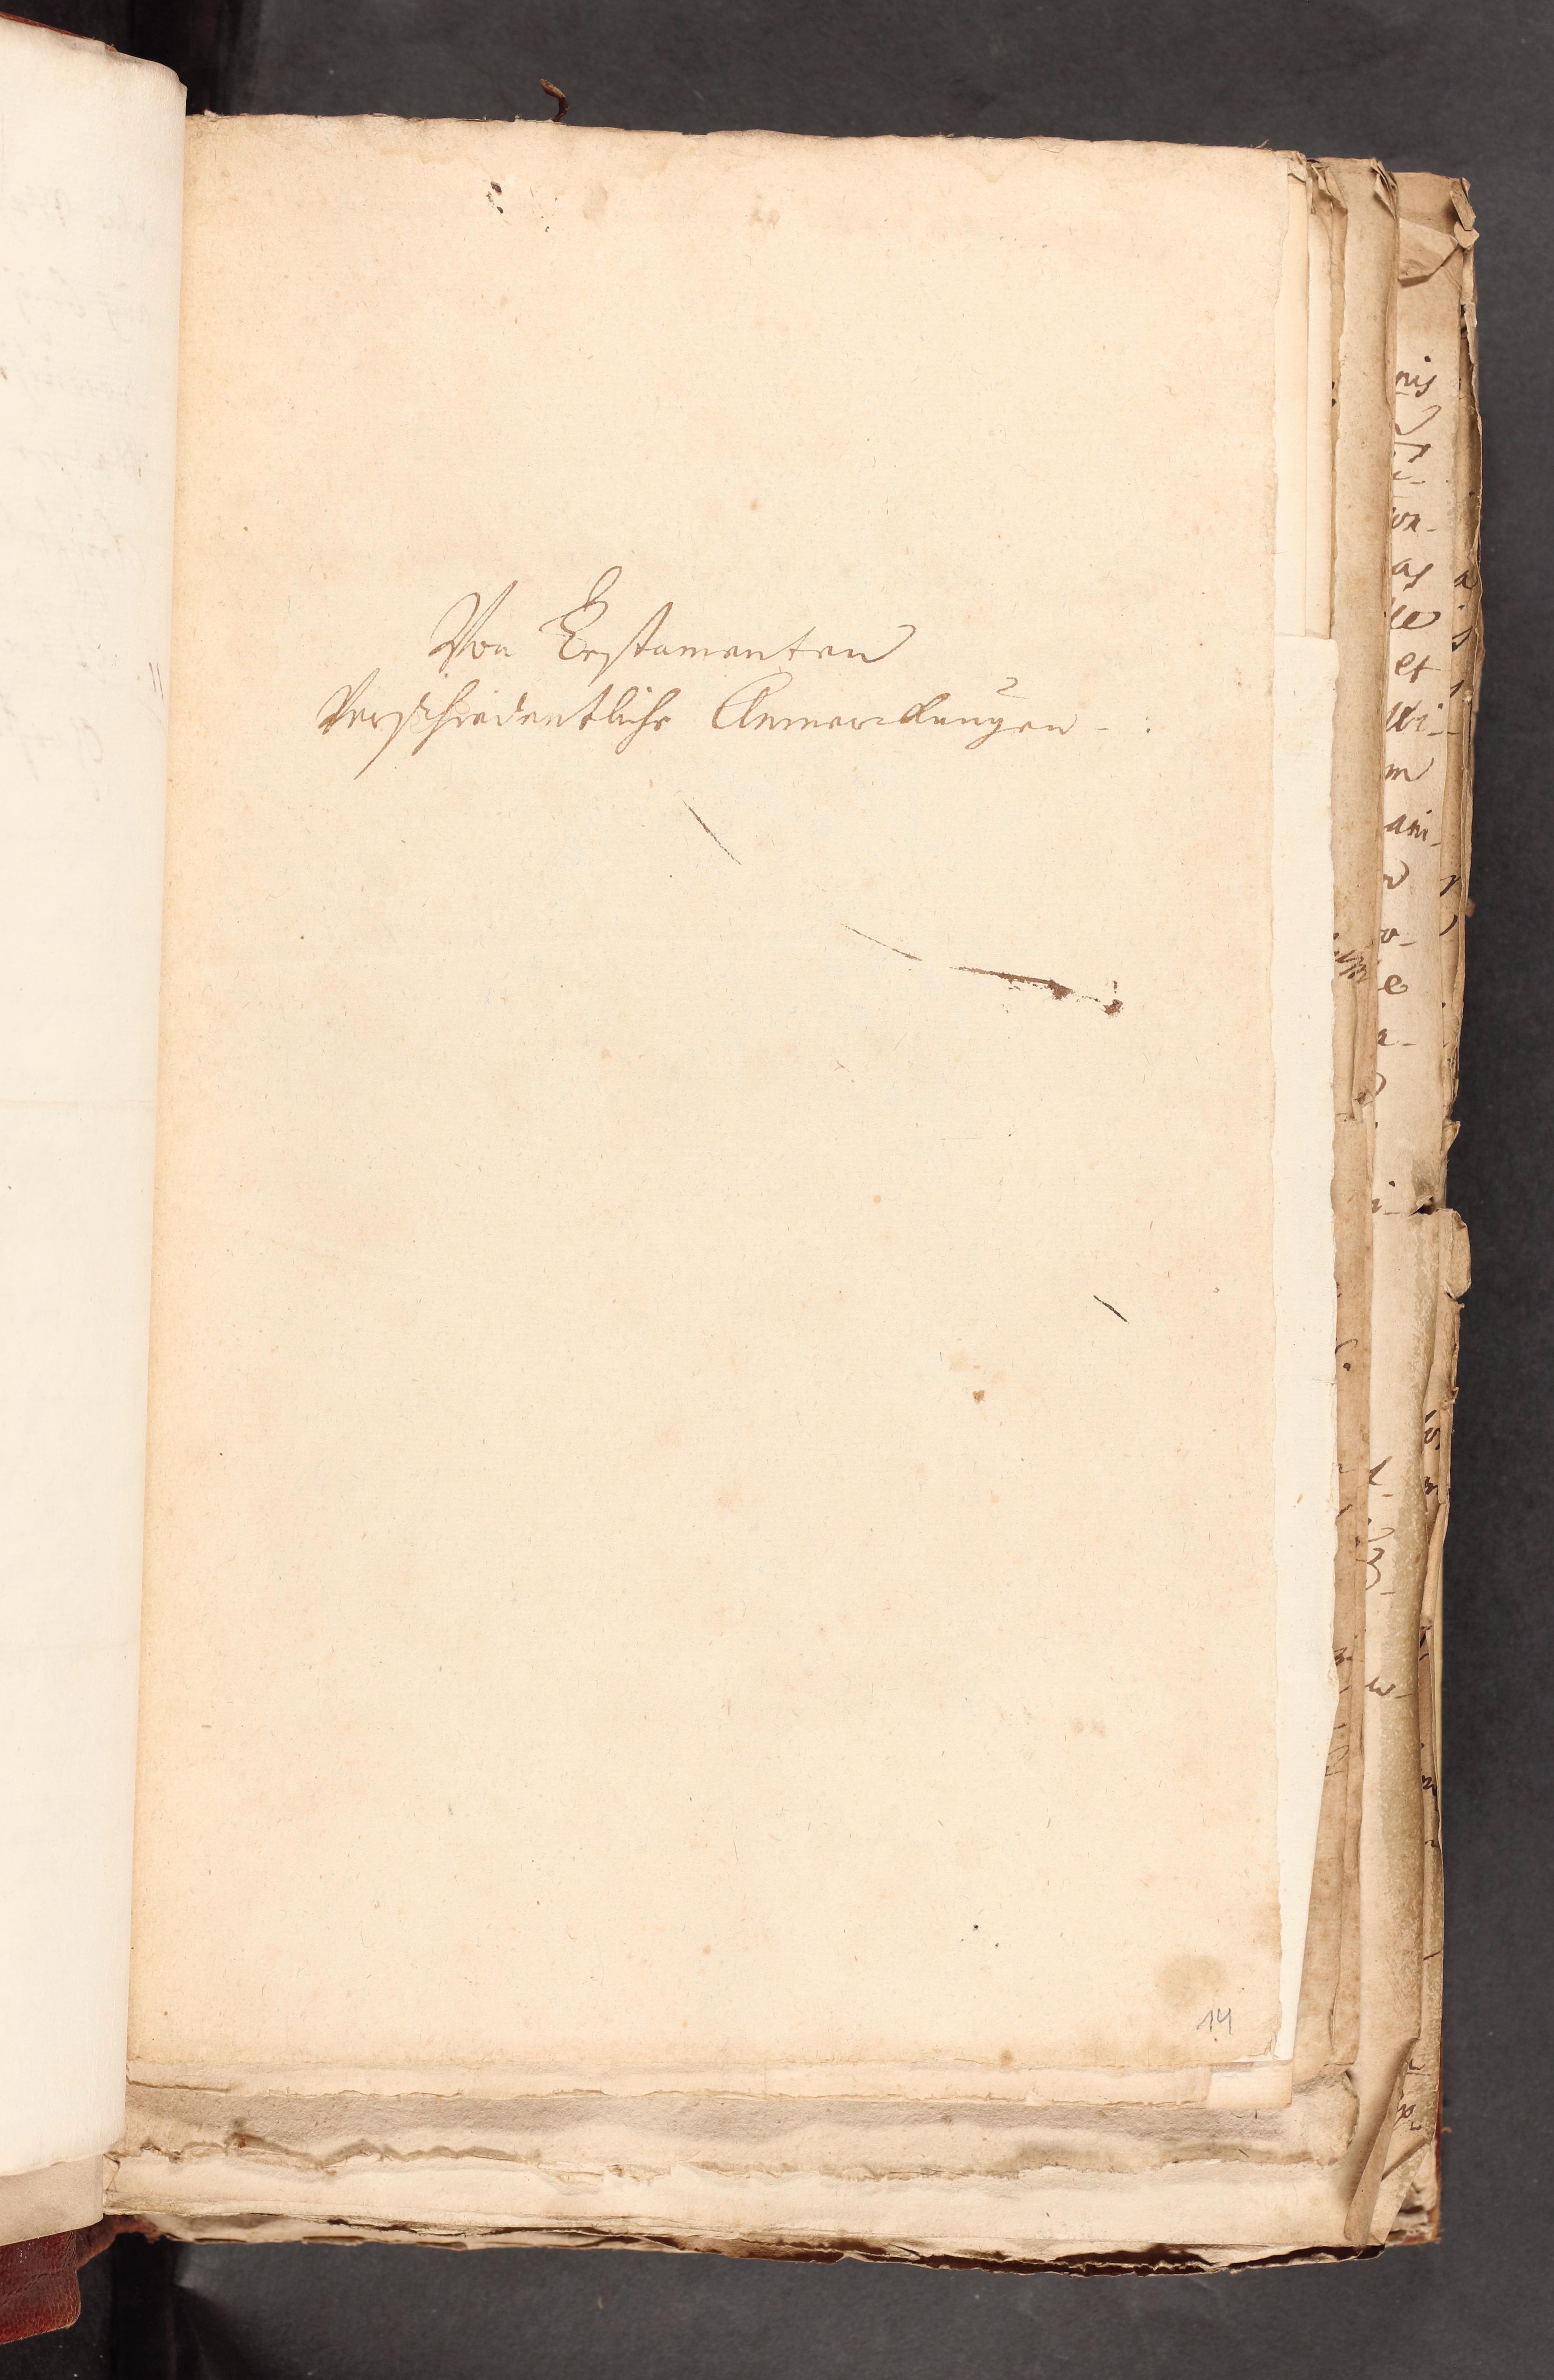 Von Testamenten
Verschiedentliche Anmerckungen -:
14